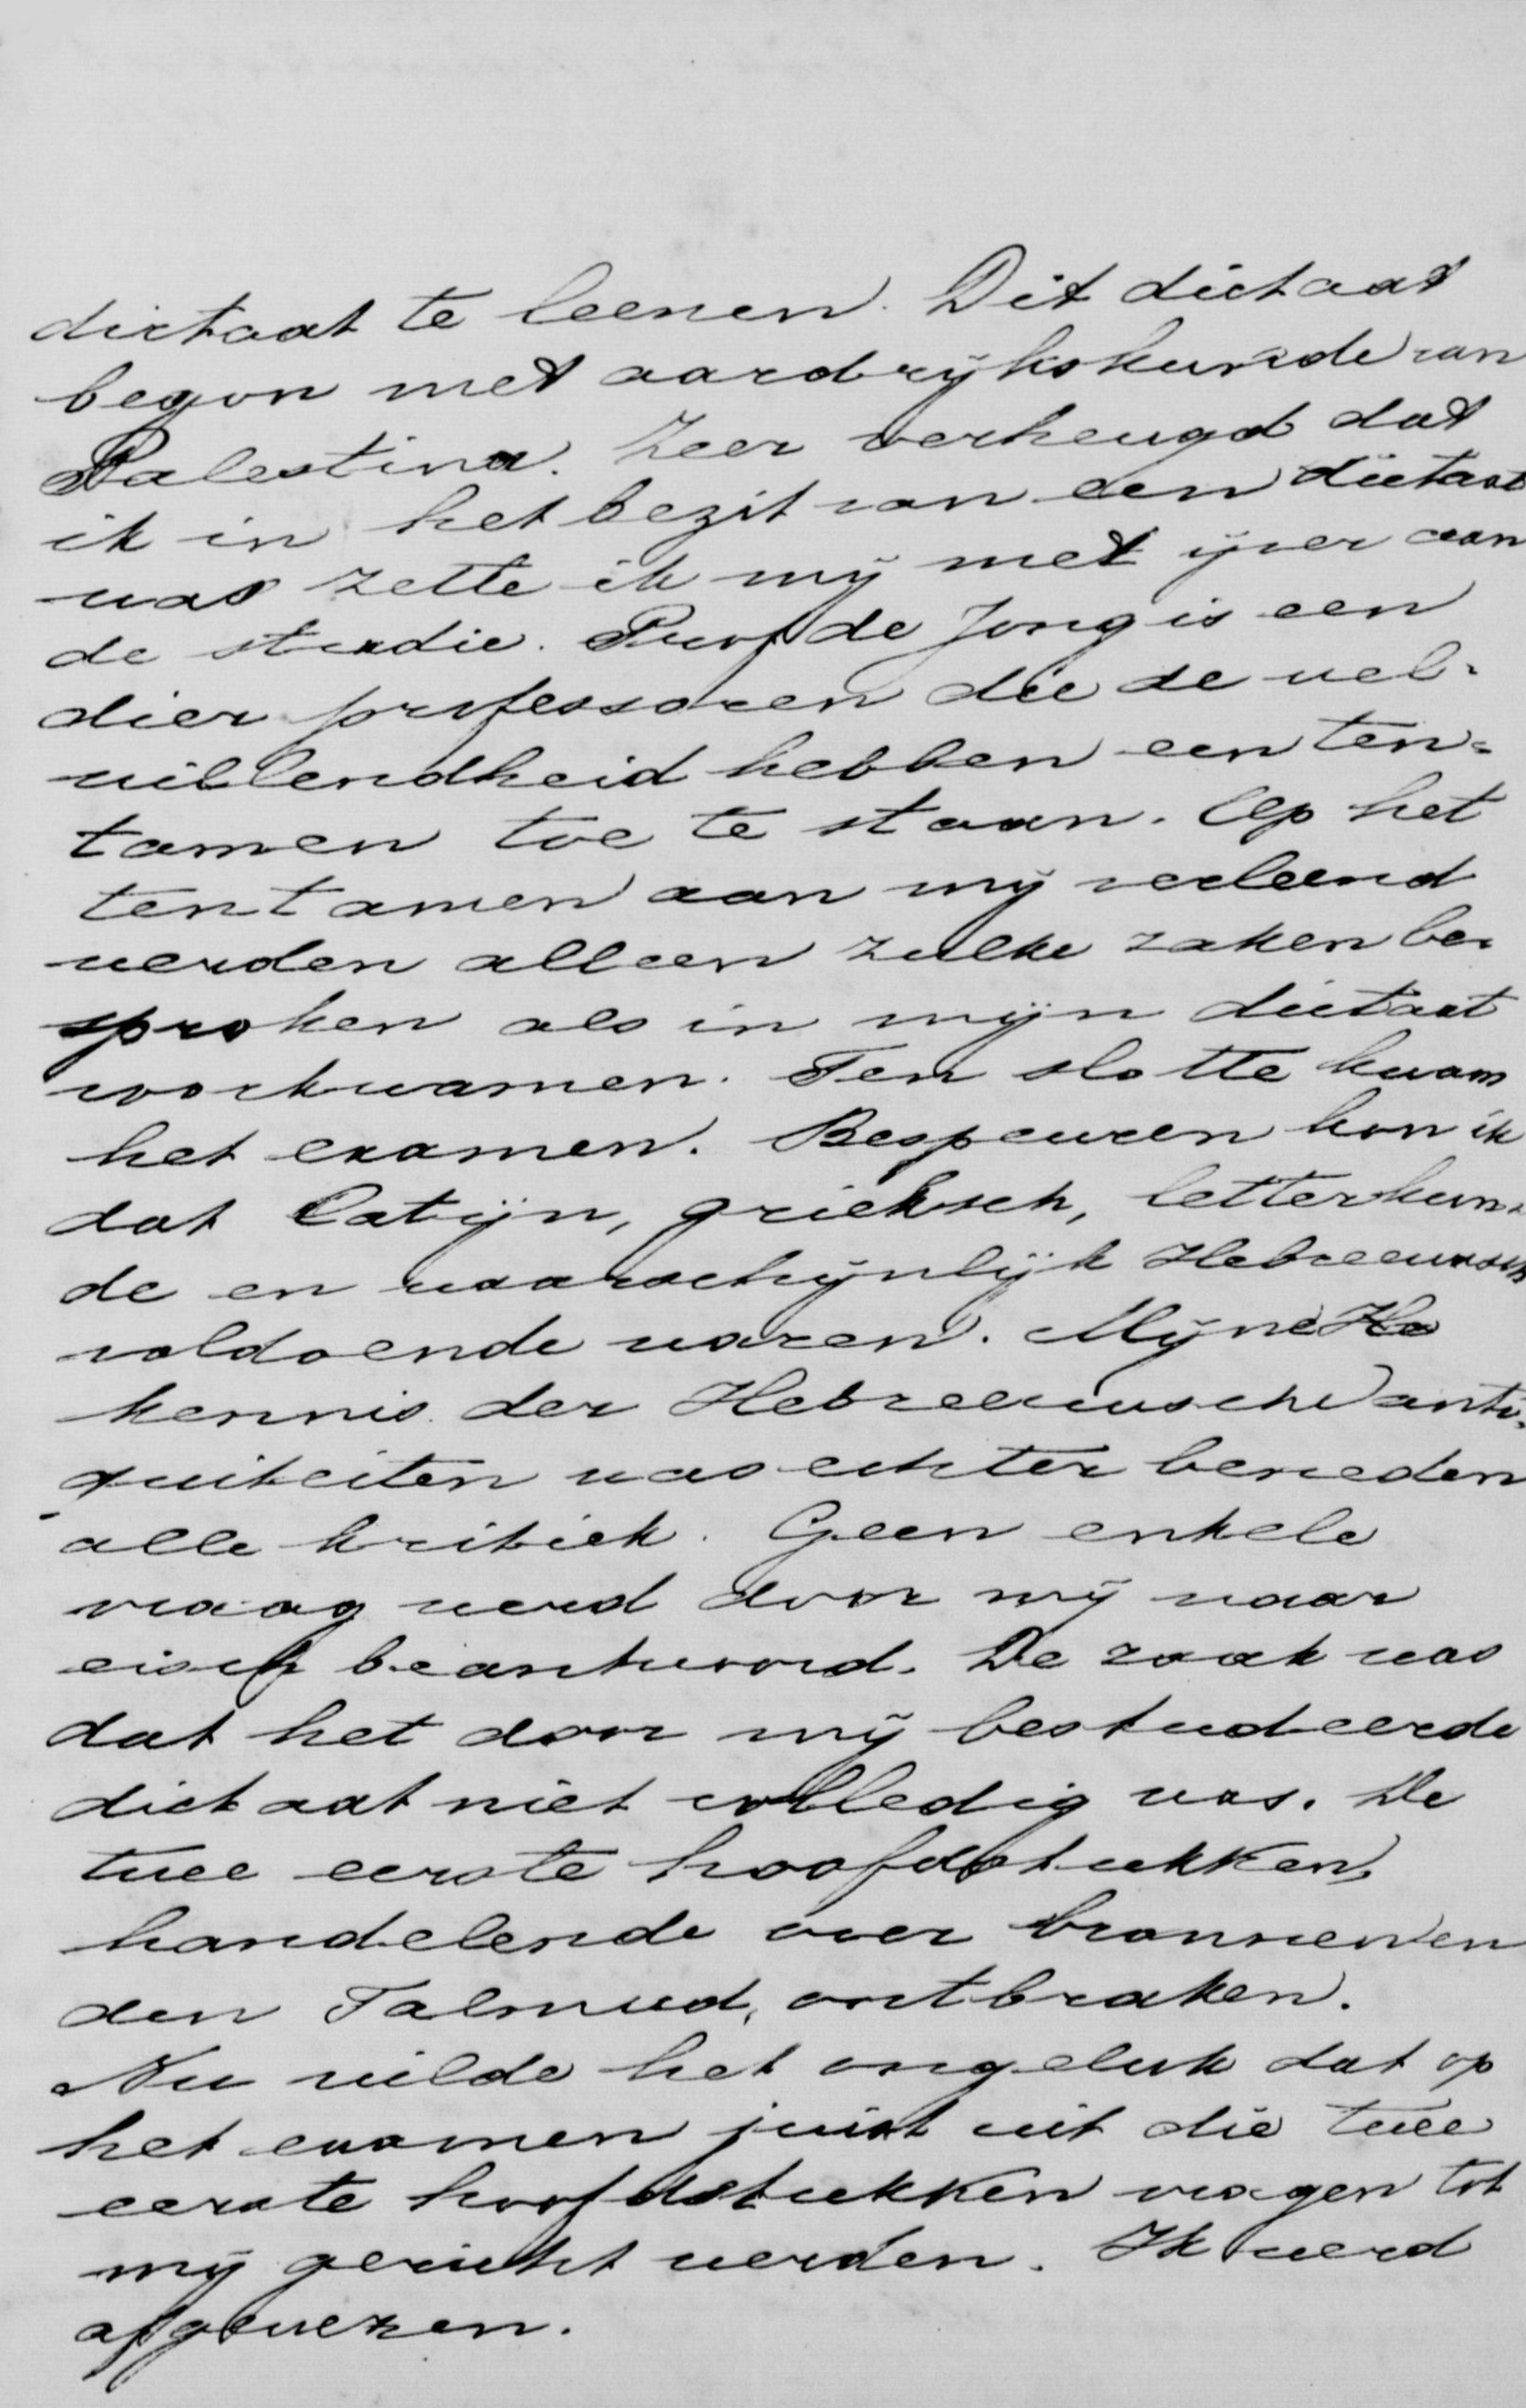 dictaat te leenen. Dit dictaat
begon met aardrijkskunde van
Palestina. Zeer verheugd dat
ik in het bezit van een dictaat
was zette ik mij met ijver aan
de studie. Prof de Jong is een
dier professoren die de wel-
willendheid hebben een ten=
tamen toe te staan. Op het
tentamen aan mij verleend
werden alleen zulke zaken be-
sproken als in mijn dictaat
voorkwamen. Ten slotte kwam
het examen. Bespeuren kon ik
dat Latijn, grieksch, letterkun-
de en waarschijnlijk Hebreeuwsch
voldoende waren. Mijne He
kennis der Hebreeuwsche anti-
quiteiten was echter beneden
alle kritiek. Geen enkele
vraag werd door mij naar
eisch beantwoord. De zaak was
dat het door mij bestudeerde
dictaat niet volledig was. De
twee eerste hoofdstukken,
handelende over bronnen en
den Talmud, ontbraken.
Nu wilde het ongeluk dat op
het examen juist uit die twee
eerste hoofdstukken vragen tot
mij gericht werden. Ik werd
afgewezen.